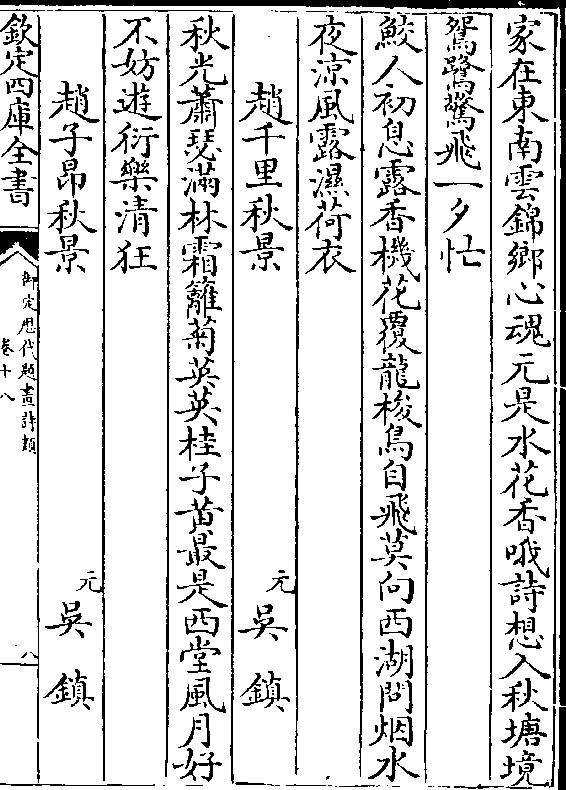 家在東南雲錦鄉心魂元是水花香哦詩想入秋塘境
鴛鷺驚飛一夕忙
鮫人初息露香機花覆龍梭鳥自飛莫向西湖問烟水
夜涼風露濕荷衣
趙千里秋景 元 吳鎮
秋光蕭瑟滿林霜籬菊英英桂子黃最是西堂風月好
不妨遊衍樂清狂
趙子昻秋景 元 吳鎮
欽定四庫全書
御定歷代題畫詩類
卷十八
八